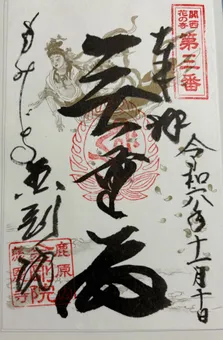 関西
花の寺
第三番
奉拝
令和六年十一月十日
三重塔
もみじ寺
金剛院
鹿原
院
恩寺